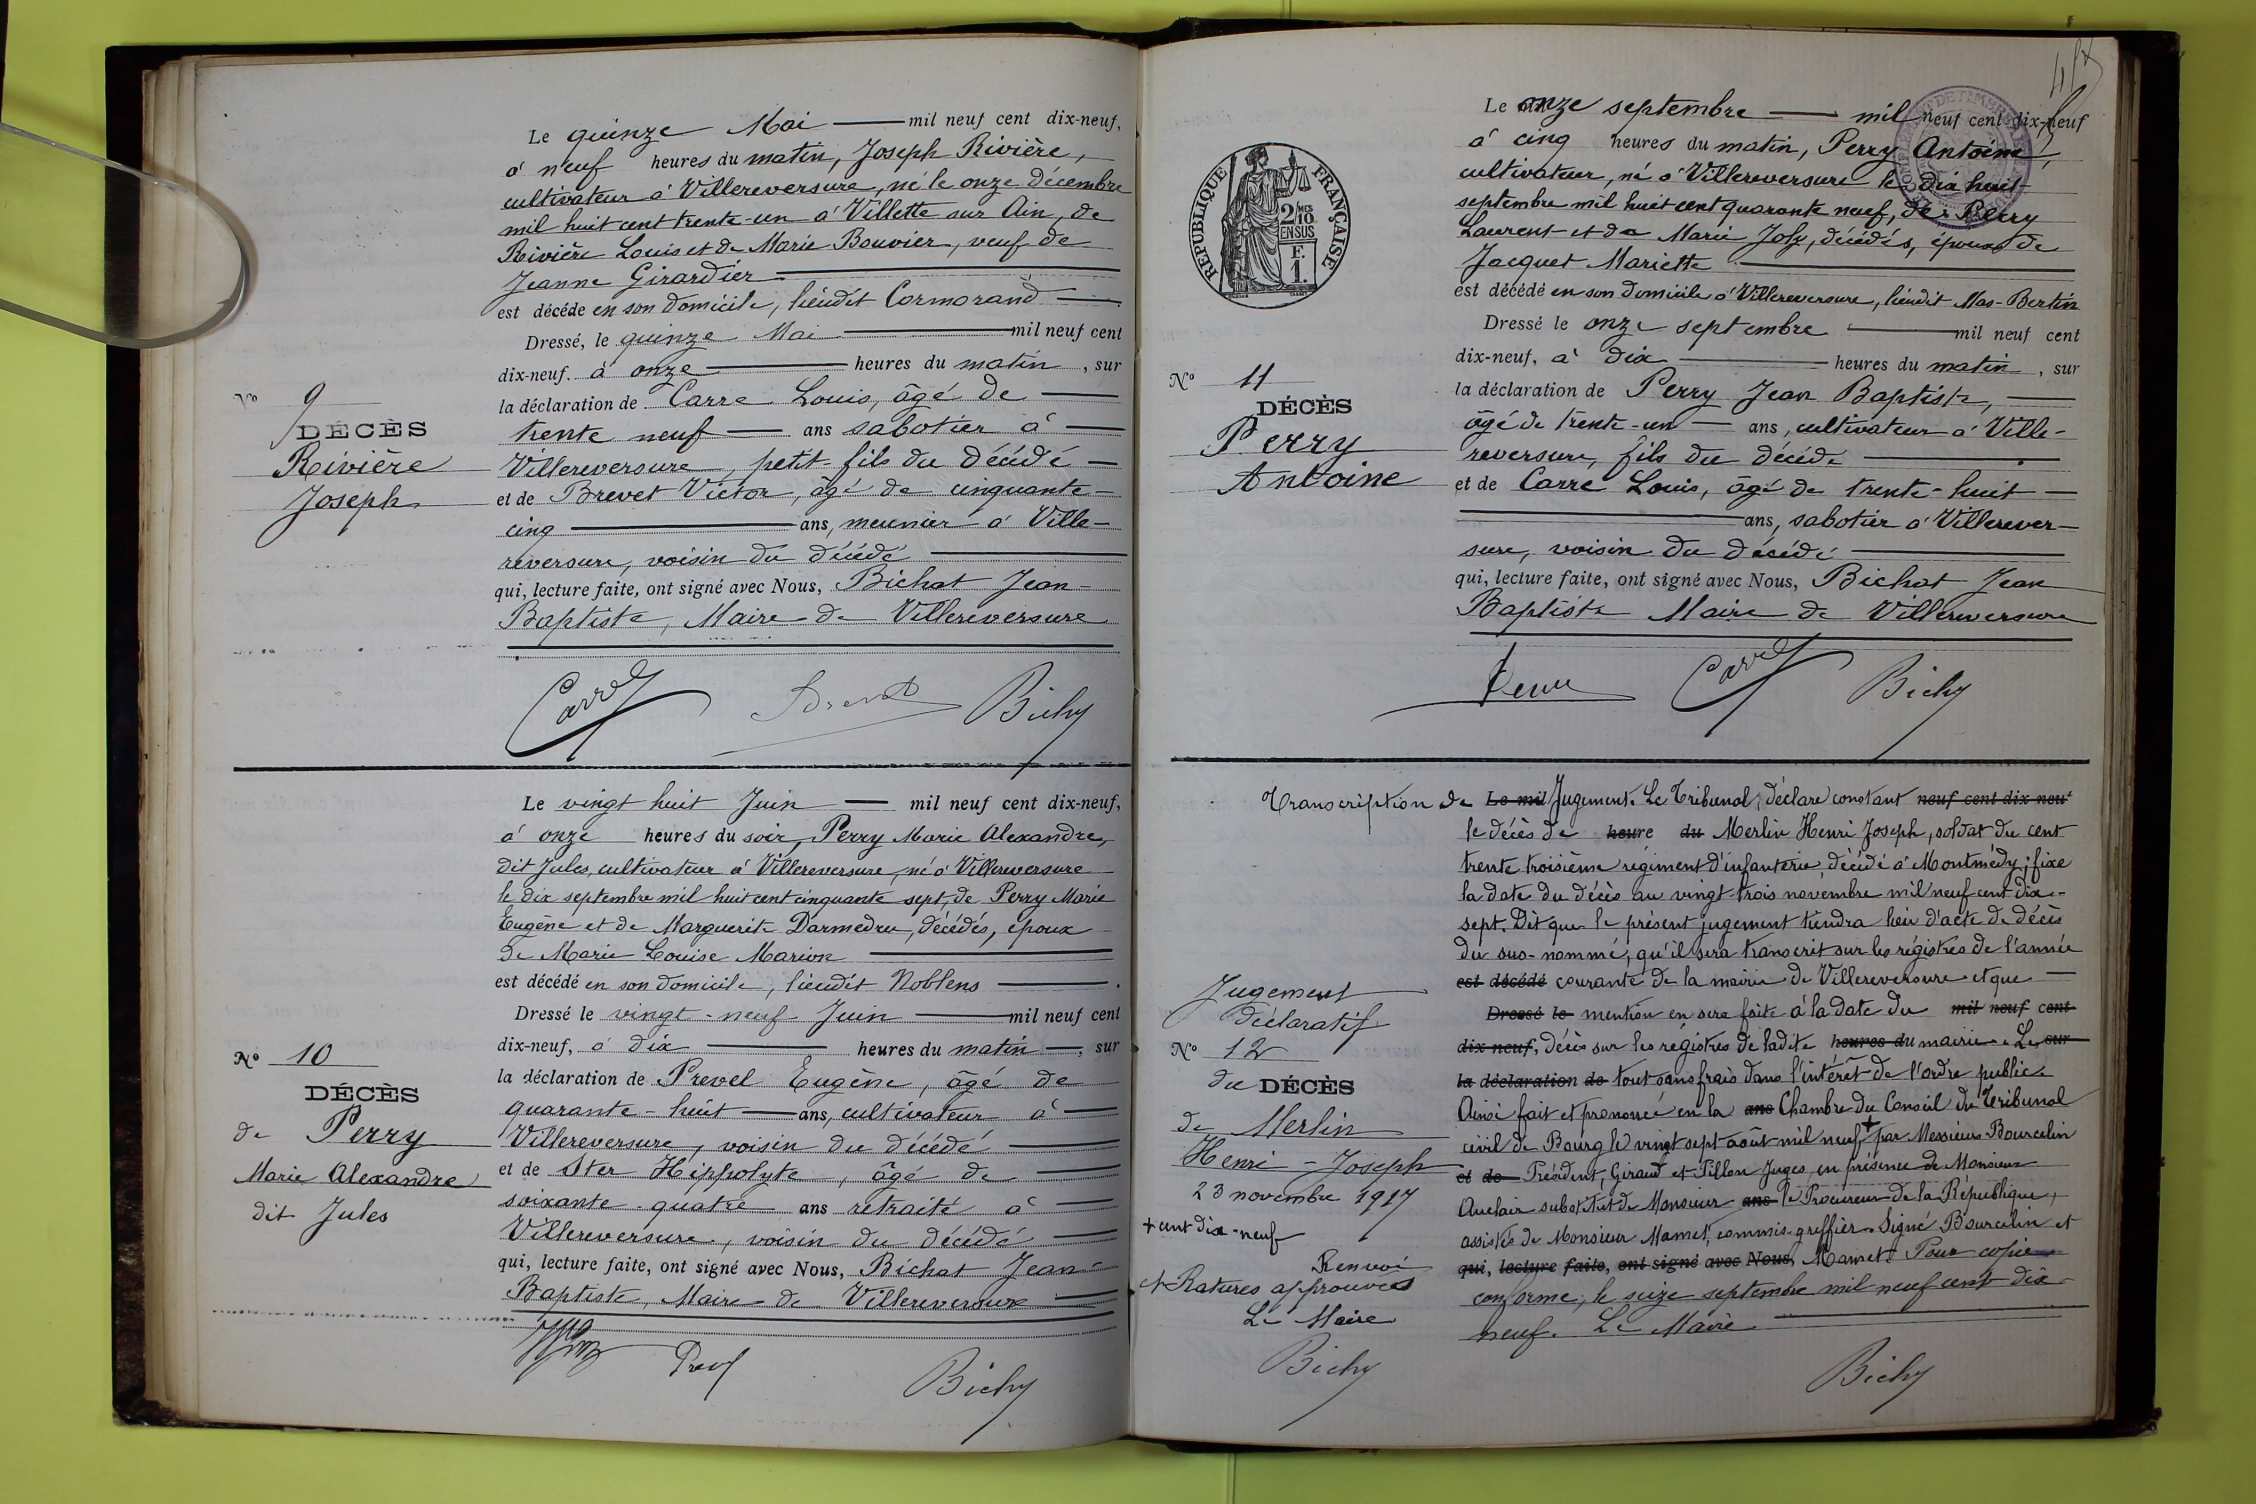 Le quinze Mai mil neuf cent dix-neuf,
à neuf heures du matin, Joseph Rivière,
cultivateur à Villereversure, né le onze décembre
mil huit cent trente-un à Villette sur Ain, de
Rivière Louis et de Marie Bouvier, veuf de
Jeanne Girardier
est décédé en son domicile, lieudit Cormorand
Dressé, le quinze Mai mil neuf cent
dix-neuf. à onze heures du matin, sur
la déclaration de Carre Louis, âgé de
trente neuf ans sabotier à
Villereversure, petit-fils du décédé
et de Brevet Victor, âgé de cinquante-
cinq ans, meunier à Ville-
reversure, voisin du décédé
qui, lecture faite, ont signé avec Nous, Bichat Jean-
Baptiste, Maire de Villereversure
No 9
DÉCÈS
Rivière
Joseph
Carre Brevet
Le vingt huit Juin mil neuf cent dix-neuf,
à onze heures du soir, Perry Marie Alexandre,
dit Jules, cultivateur à Villereversure, né à Villereversure
le dix septembre mil huit cent cinquante sept, de Perry Marie
Eugène et de Marguerite Darmedru, décédés, époux
de Marie Louise Marion
est décédé en son domicile, lieudit Noblens
Dressé le vingt-neuf Juin mil neuf cent
dix-neuf, à dix heures du matin, sur
la déclaration de Prevel Eugène, âgé de
quarante-huit ans, cultivateur à
Villereversure, voisin du décédé
et de Ster Hippolyte, âgé de
soixante-quatre ans retraité à
Villereversure, voisin du décédé
qui, lecture faite, ont signé avec Nous, Bichat Jean-
Baptiste, Maire de Villereversure
No 10
DÉCÈS
de Perry
Marie Alexandre
dit Jules
RÉPUBLIQUE FRANÇAISE
2/10 MES
EN SUS
F.
1.
Le onze septembre mil neuf cent dix-neuf
à cinq heures du matin, Perry Antoine,
cultivateur, né à Villereversure le dix huit
septembre mil huit cent quarante neuf, de Perry
Laurent et de Marie Joly, décédés, époux de
Jacquet Mariette
est décédé en son domicile à Villereversure, lieudit Mas-Bertin
Dressé le onze septembre mil neuf cent
dix-neuf, à dix heures du matin, sur
la déclaration de Perry Jean Baptiste,
âgé de trente-un ans, cultivateur à Ville-
reversure, fils du décédé
et de Carre Louis, âgé de trente-huit
ans, sabotier à Villerever-
sure, voisin du décédé
qui, lecture faite, ont signé avec Nous, Bichat Jean
Baptiste Maire de Villereversure
No 11
DÉCÈS
Perry
Antoine
Carre
Transcription de Le mil Jugement. Le Tribunal, déclare constant neuf cent dix-neuf
le décès de heure du Merlin Henri Joseph, soldat du cent
trente troisième régiment d'infanterie, décédé à Montmédy; fixe
la date du décès au vingt-trois novembre mil neuf cent dix-
sept. Dit que le présent jugement tiendra lieu d'acte de décès
du sus-nommé, qu'il sera transcrit sur les régistres de l'année
est décédé courante de la mairie de Villereversure et que
Dressé le mention en sera faite à la date du mil neuf cent
dix neuf, décès sur les régistres de ladite heures du mairie. Le sur
la déclaration de tout sans frais dans l'intérêt de l'ordre public.
Ainsi fait et prononcé en la ans Chambre du Conseil du Tribunal
civil de Bourg le vingt sept août mil neuf + par Messieurs Bourcelin
et de Président, Giraud et Pillon Juges, en présence de Monsieur
Auclair substitut de Monsieur ans le Procureur de la République,
assistés de Monsieur Mamet, commis-greffier. Signé Bourcelin et
qui, lecture faite, ont signé avec Nous, Mamet. Pour copie
conforme, le seize septembre mil neuf cent dix-
neuf. Le Maire
Jugement
déclaratif
No 12
du DÉCÈS
de Merlin
Henri-Joseph
23 novembre 1917
+ cent dix-neuf
Renvoi
+ Ratures approuvés
Le Maire